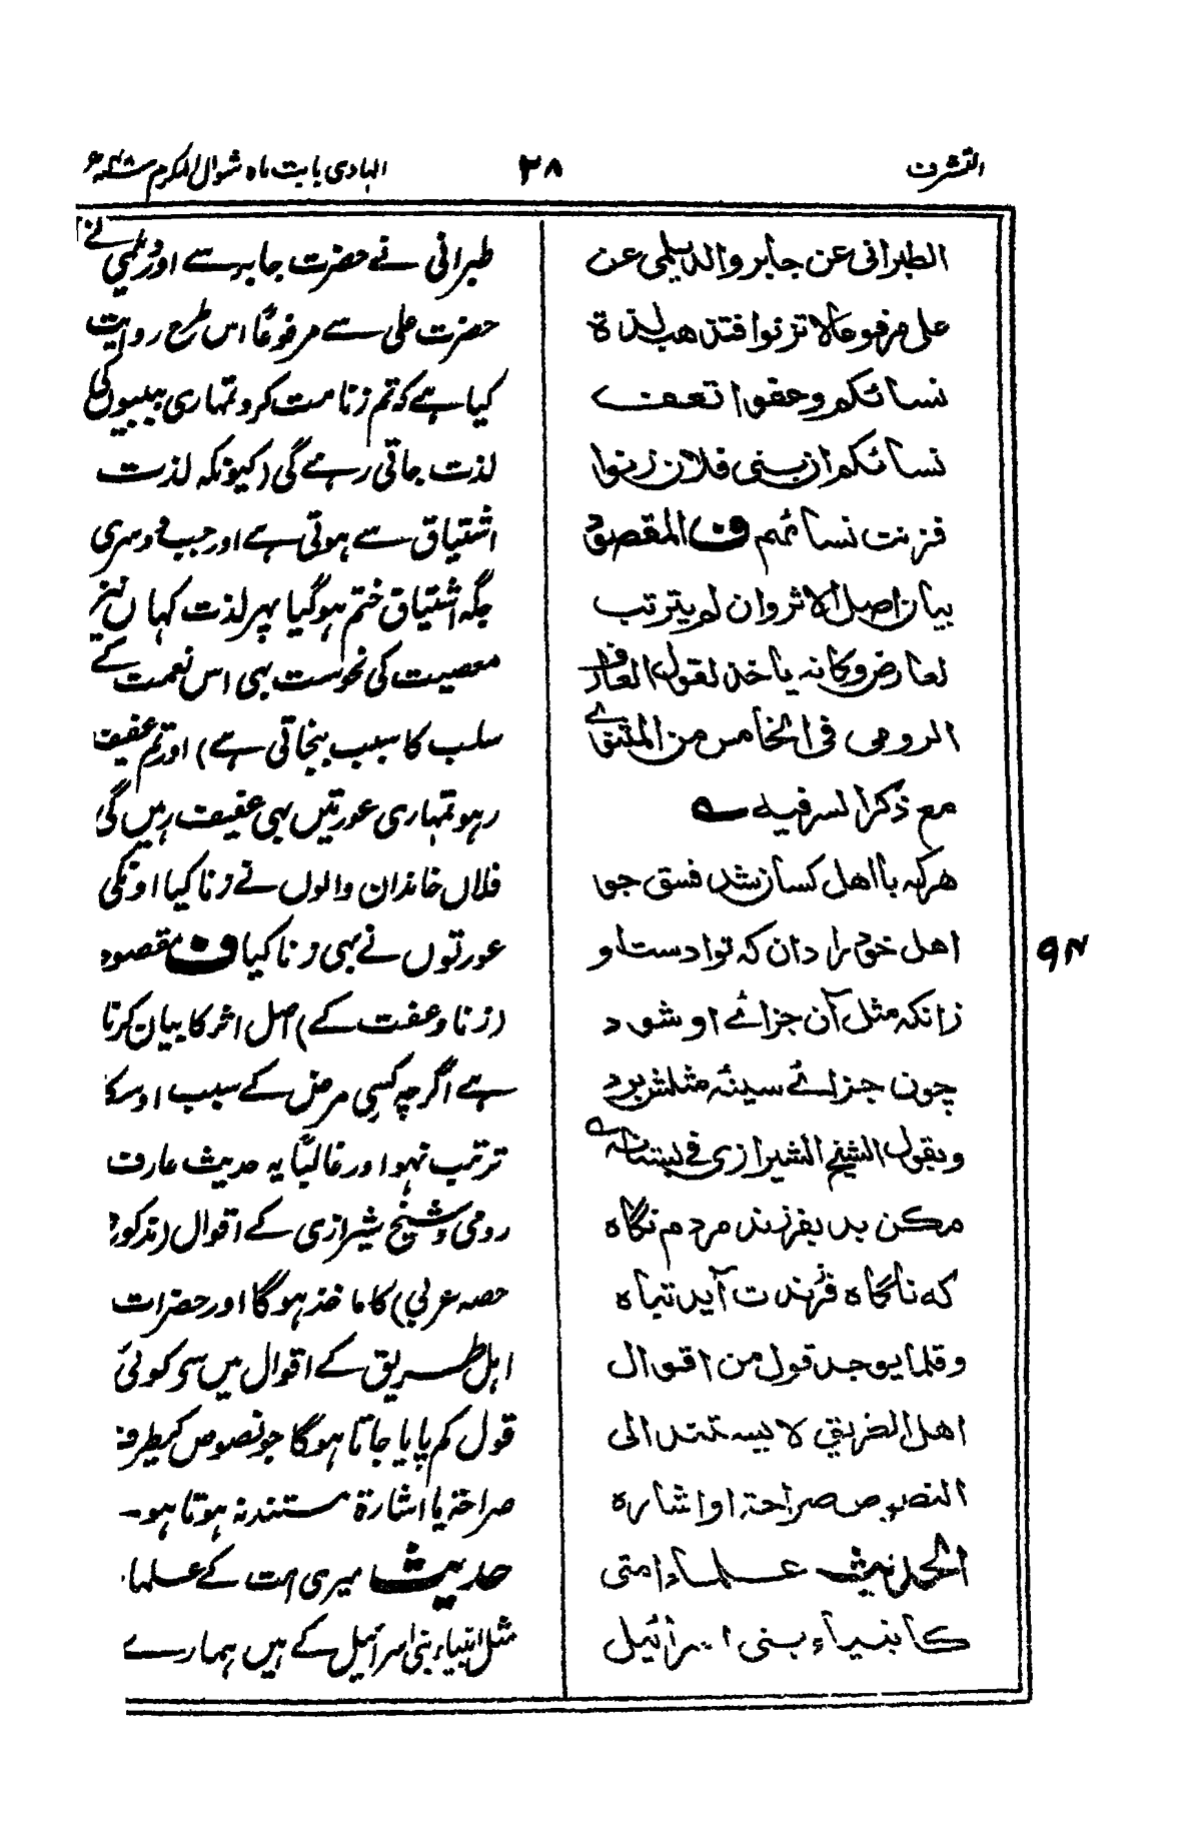 التشرف
۳۸
الہادی بابت ماہ شوال المکرم
الطبرانی عن جابر والدیلمی عن
علی مرفوعا لا تزنوا فتذهب لذة
نسائکم وعفوا تعف
نسائکم ان بنی فلان زنوا
فزنت نسائهم ف المقصود
بیان اصل الاثر وان لم یترتب
لعارض وکانه یاخذ لقول العارف
الرومی فی الخامس من المثنوی
مع ذکر السرفیه ے
هرکه با اهل کسان شد فسق جو
اهل خود را دان که قوادست او
زانکه مثل آن جزائے او شود
چون جزائے سیئه مثلش بود
ویقول الشیخ الشیرازی فی بستانه ے
مکن بد بفرزند مردم نگاه
که ناگاه فرزندت آید تباه
وقلما یوجد قول من اقوال
اهل الطریق لا یستند الی
النصوص صراحة او اشاره
الحدیث علماء امتی
کانبیاء بنی اسرائیل
طبرانی نے حضرت جابر سے اور دیلمی نے
حضرت علی سے مرفوعًا اس طرح روایت
کیا ہے کہ تم زنا مت کرو تمہاری بیبیوں کی
لذت جاتی رہے گی (کیونکہ لذت
اشتیاق سے ہوتی ہے اور جب دوسری
جگہ اشتیاق ختم ہوگیا پہر لذت کہاں نیز
معصیت کی نحوست بہی اس نعمت کے
سلب کا سبب بنجاتی ہے) اور تم عفیف
رہو تمہاری عورتیں بہی عفیف رہیں گی
فلاں خاندان والوں نے زنا کیا اونکی
عورتوں نے بہی زنا کیا ف مقصود
(زنا و عفت کے) اصل اثر کا بیان کرنا
ہے اگرچہ کسی مرض کے سبب اوسکا
ترتب نہو اور غالبًا یہ حدیث عارف
رومی و شیخ شیرازی کے اقوال (مذکورہ
حصہ عربی) کا ماخذ ہوگا اور حضرات
اہل طریق کے اقوال میں سے کوئی
قول کم پایا جاتا ہوگا جو نصوص کیطرف
صراحۃ یا اشارۃ مستند نہ ہوتا ہو۔
حدیث میری امت کے علماء
مثل انبیاء بنی اسرائیل کے ہیں ہمارے
۹۴